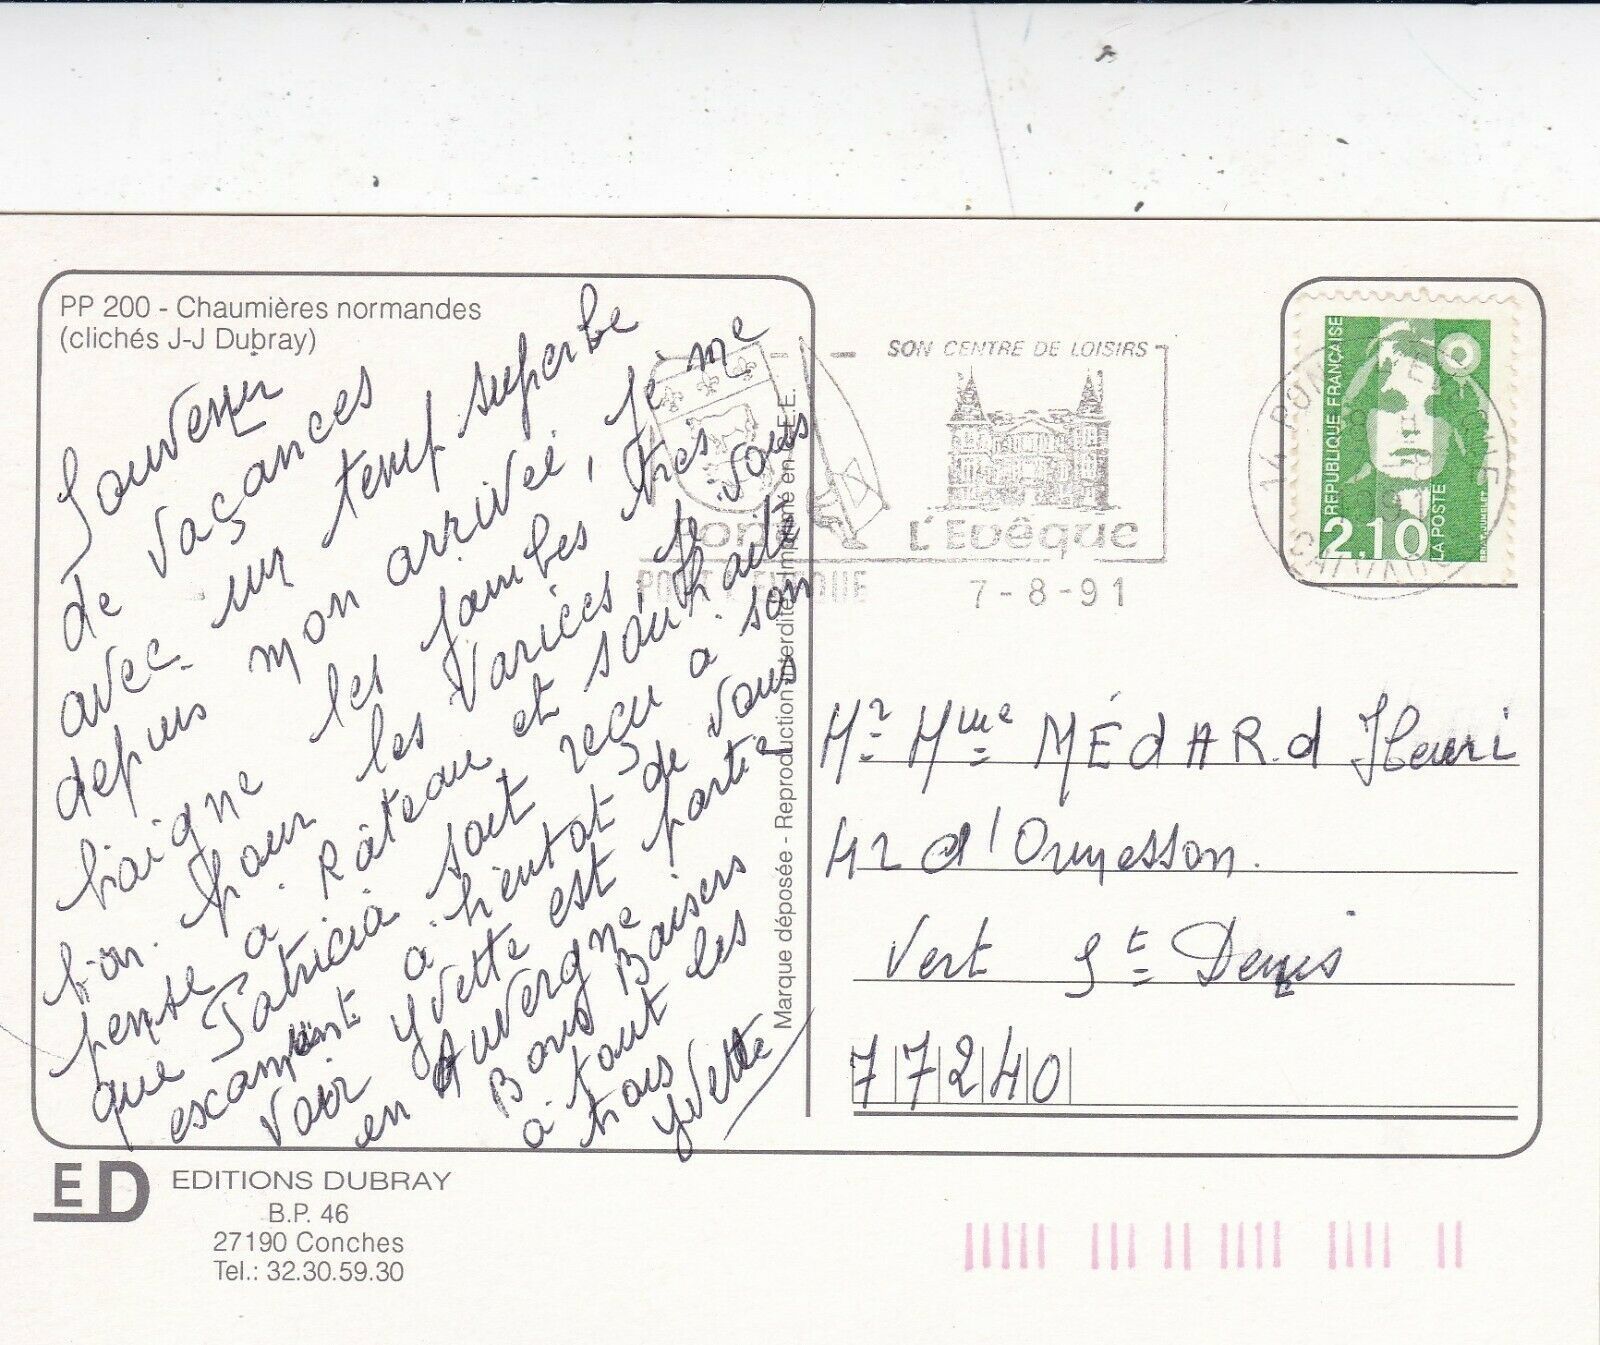 PP 200 - Chaumières normandes
(clichés J-J Dubray)
Souvenir
de vacances
avec un temp superbe
depuis mon arrivée, je me
baigne les jambes très
bon pour les varices, je vous
pense a Râteau et souhaite
que Patricia soit reçu a son
escampt a bientot de vous
voir Yvette est partie
en Auvergne
Bons Baisers
a tout les
trois
Yvette
Marque déposée - Reproduction interdite - Imprimé en C.E.E.
SON CENTRE DE LOISIRS
Pont L'Evêque
PONT L'EVEQUE
7-8-91
14 PONT L'EVEQUE
CALVADOS
REPUBLIQUE FRANÇAISE
2,10
LA POSTE
Mr Mme MÉdARd Henri
42 d'Ormesson.
Vert St Denis
77240
ED
EDITIONS DUBRAY
B.P. 46
27190 Conches
Tel.: 32.30.59.30